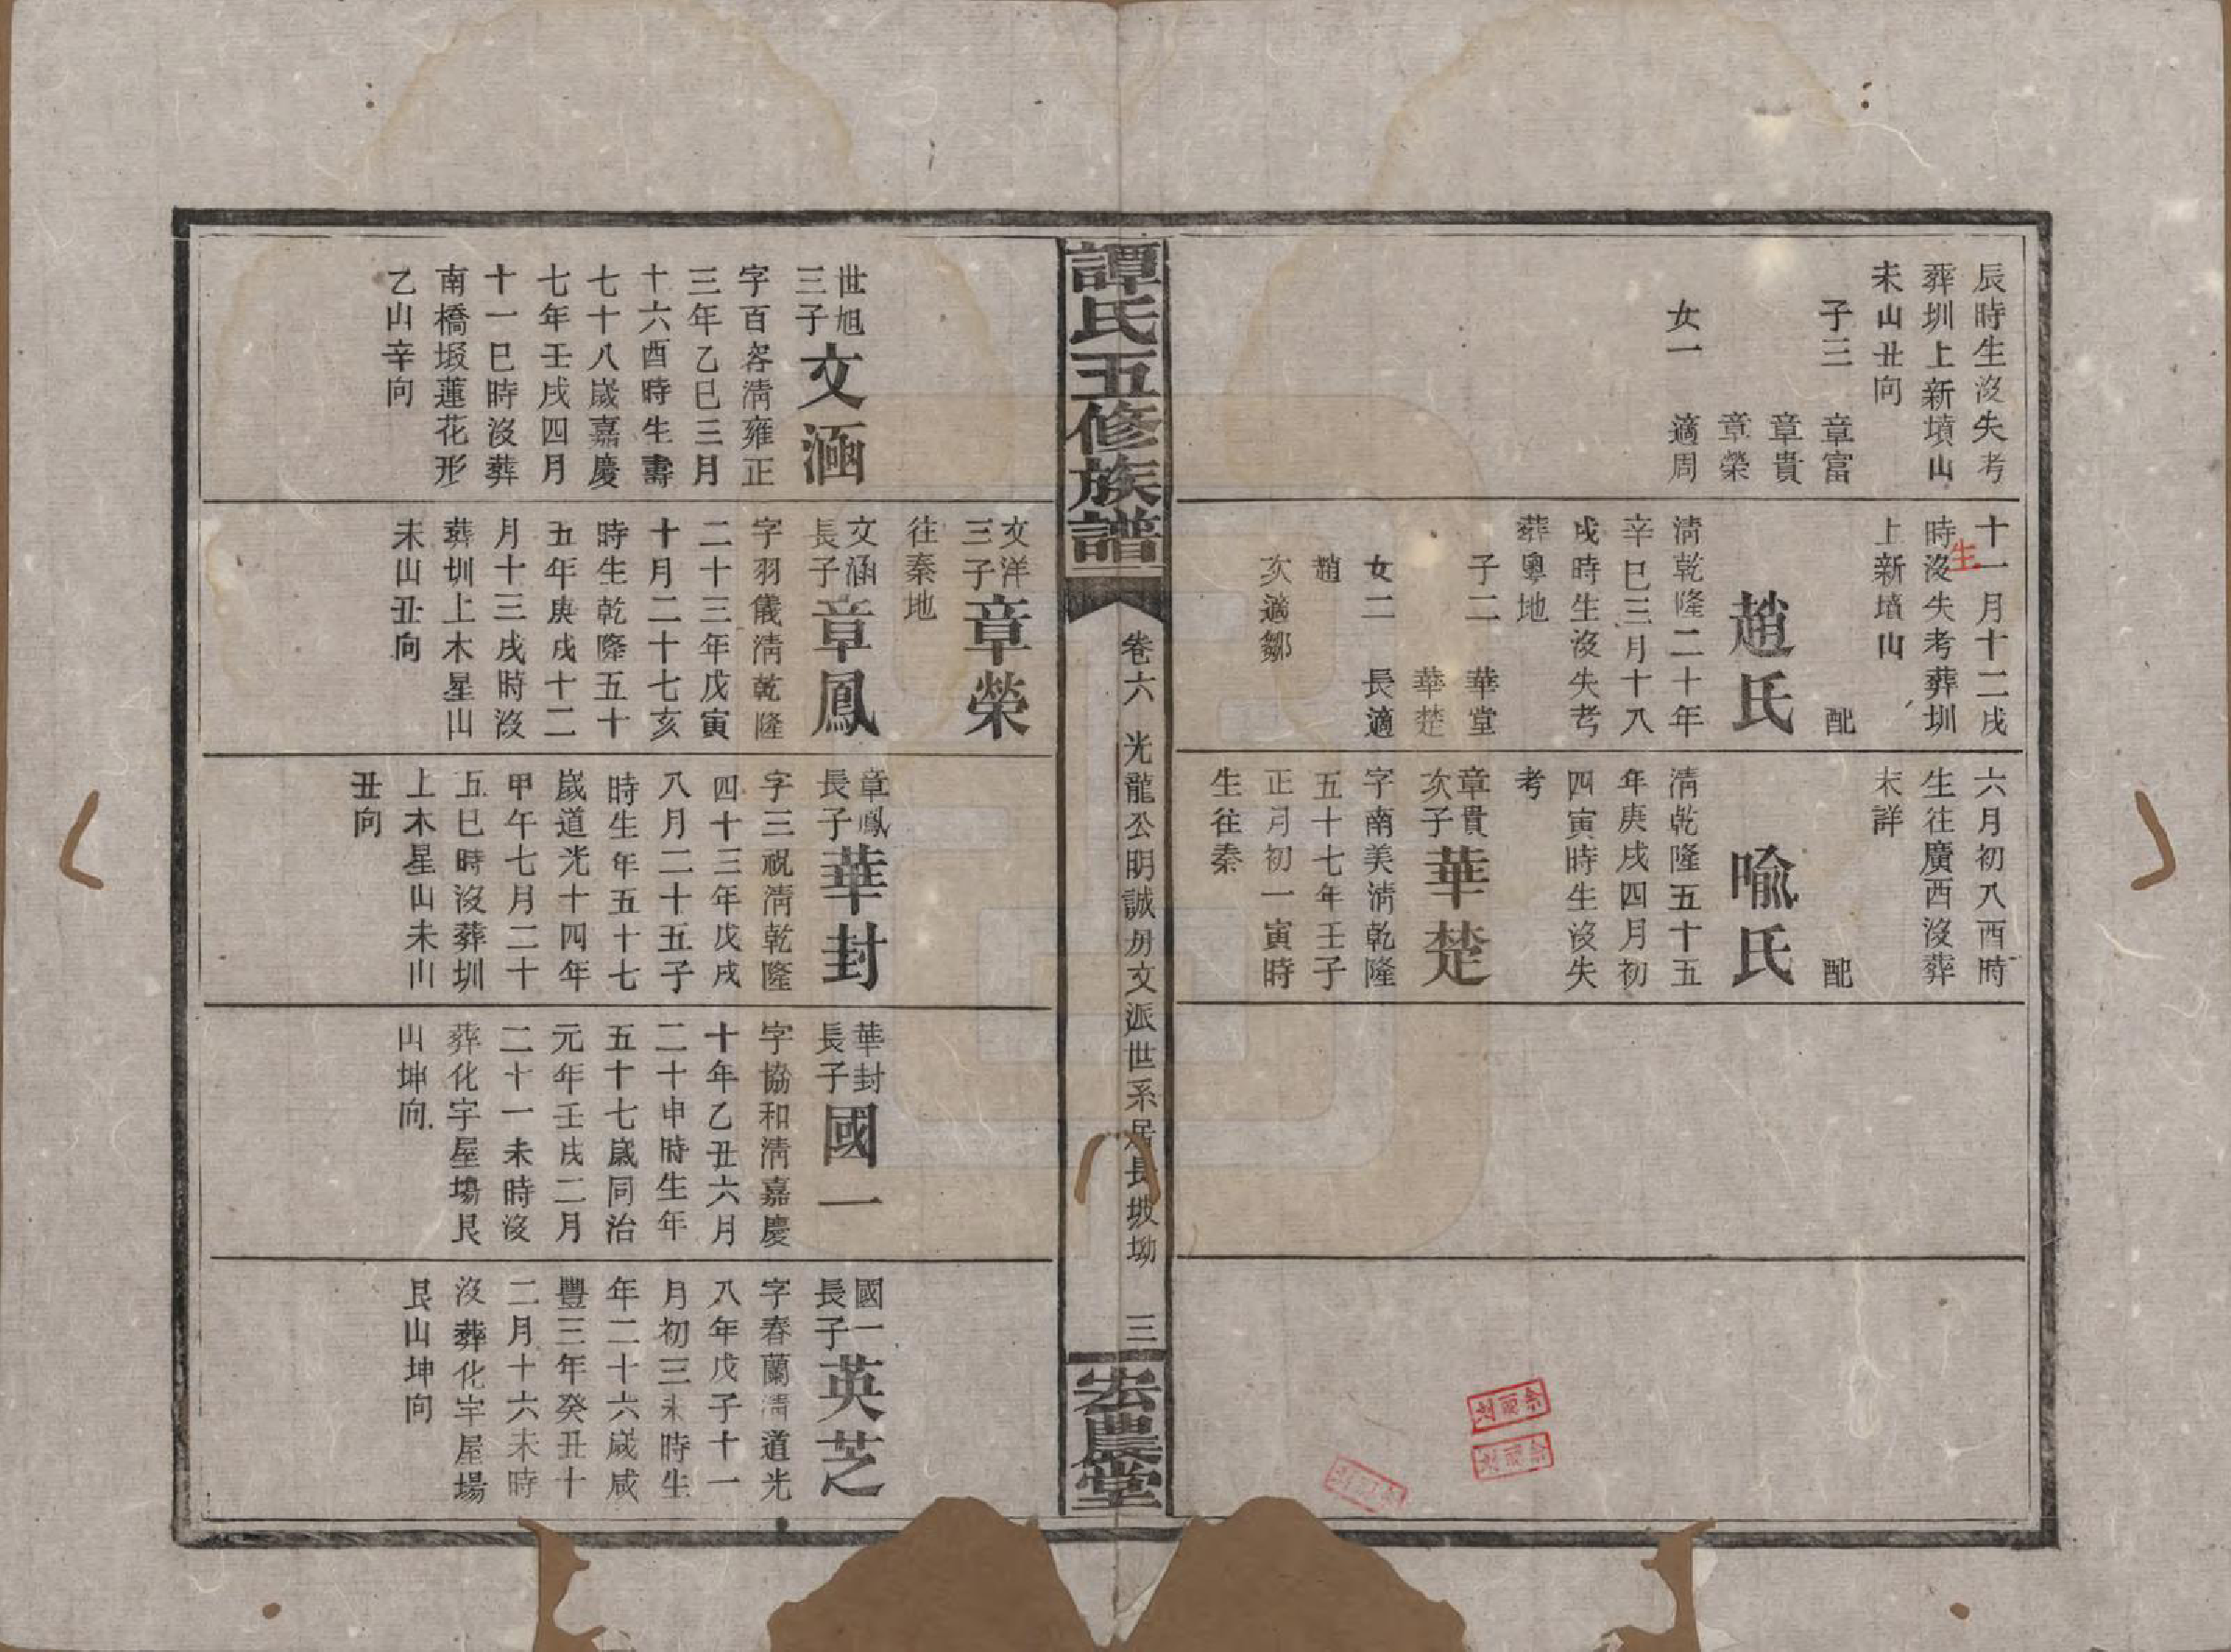 辰時生沒失考
葬圳上新墳山
未山丑向
子三 章富
章貴
章榮
女一 適周
十一月十二戌
時生沒失考葬圳
上新墳山
配
趙氏
淸乾隆二十年
辛巳三月十八
戌時生沒失考
葬粵地
子二 華堂
華楚
女二 長適
趙
次適鄒
六月初八酉時
生往廣西沒葬
未詳
配
喩氏
淸乾隆五十五
年庚戌四月初
四寅時生沒失
考
章貴
次子華楚
字南美淸乾隆
五十七年壬子
正月初一寅時
生往秦
譚氏五修族譜
卷六 光龍公明誠房文派世系居長坡坳 三
宏農堂
世旭
三子文涵
字百容淸雍正
三年乙巳三月
十六酉時生壽
七十八歲嘉慶
七年壬戌四月
十一巳時沒葬
南橋塅蓮花形
乙山辛向
文洋
三子章榮
往秦地
文涵
長子章鳳
字羽儀淸乾隆
二十三年戊寅
十月二十七亥
時生乾隆五十
五年庚戌十二
月十三戌時沒
葬圳上木星山
未山丑向
章鳳
長子華封
字三祝淸乾隆
四十三年戊戌
八月二十五子
時生年五十七
歲道光十四年
甲午七月二十
五巳時沒葬圳
上木星山未山
丑向
華封
長子國一
字協和淸嘉慶
十年乙丑六月
二十申時生年
五十七歲同治
元年壬戌二月
二十一未時沒
葬化字屋場艮
山坤向
國一
長子英芝
字春蘭淸道光
八年戊子十一
月初三未時生
年二十六歲咸
豐三年癸丑十
二月十六未時
沒葬化字屋場
艮山坤向